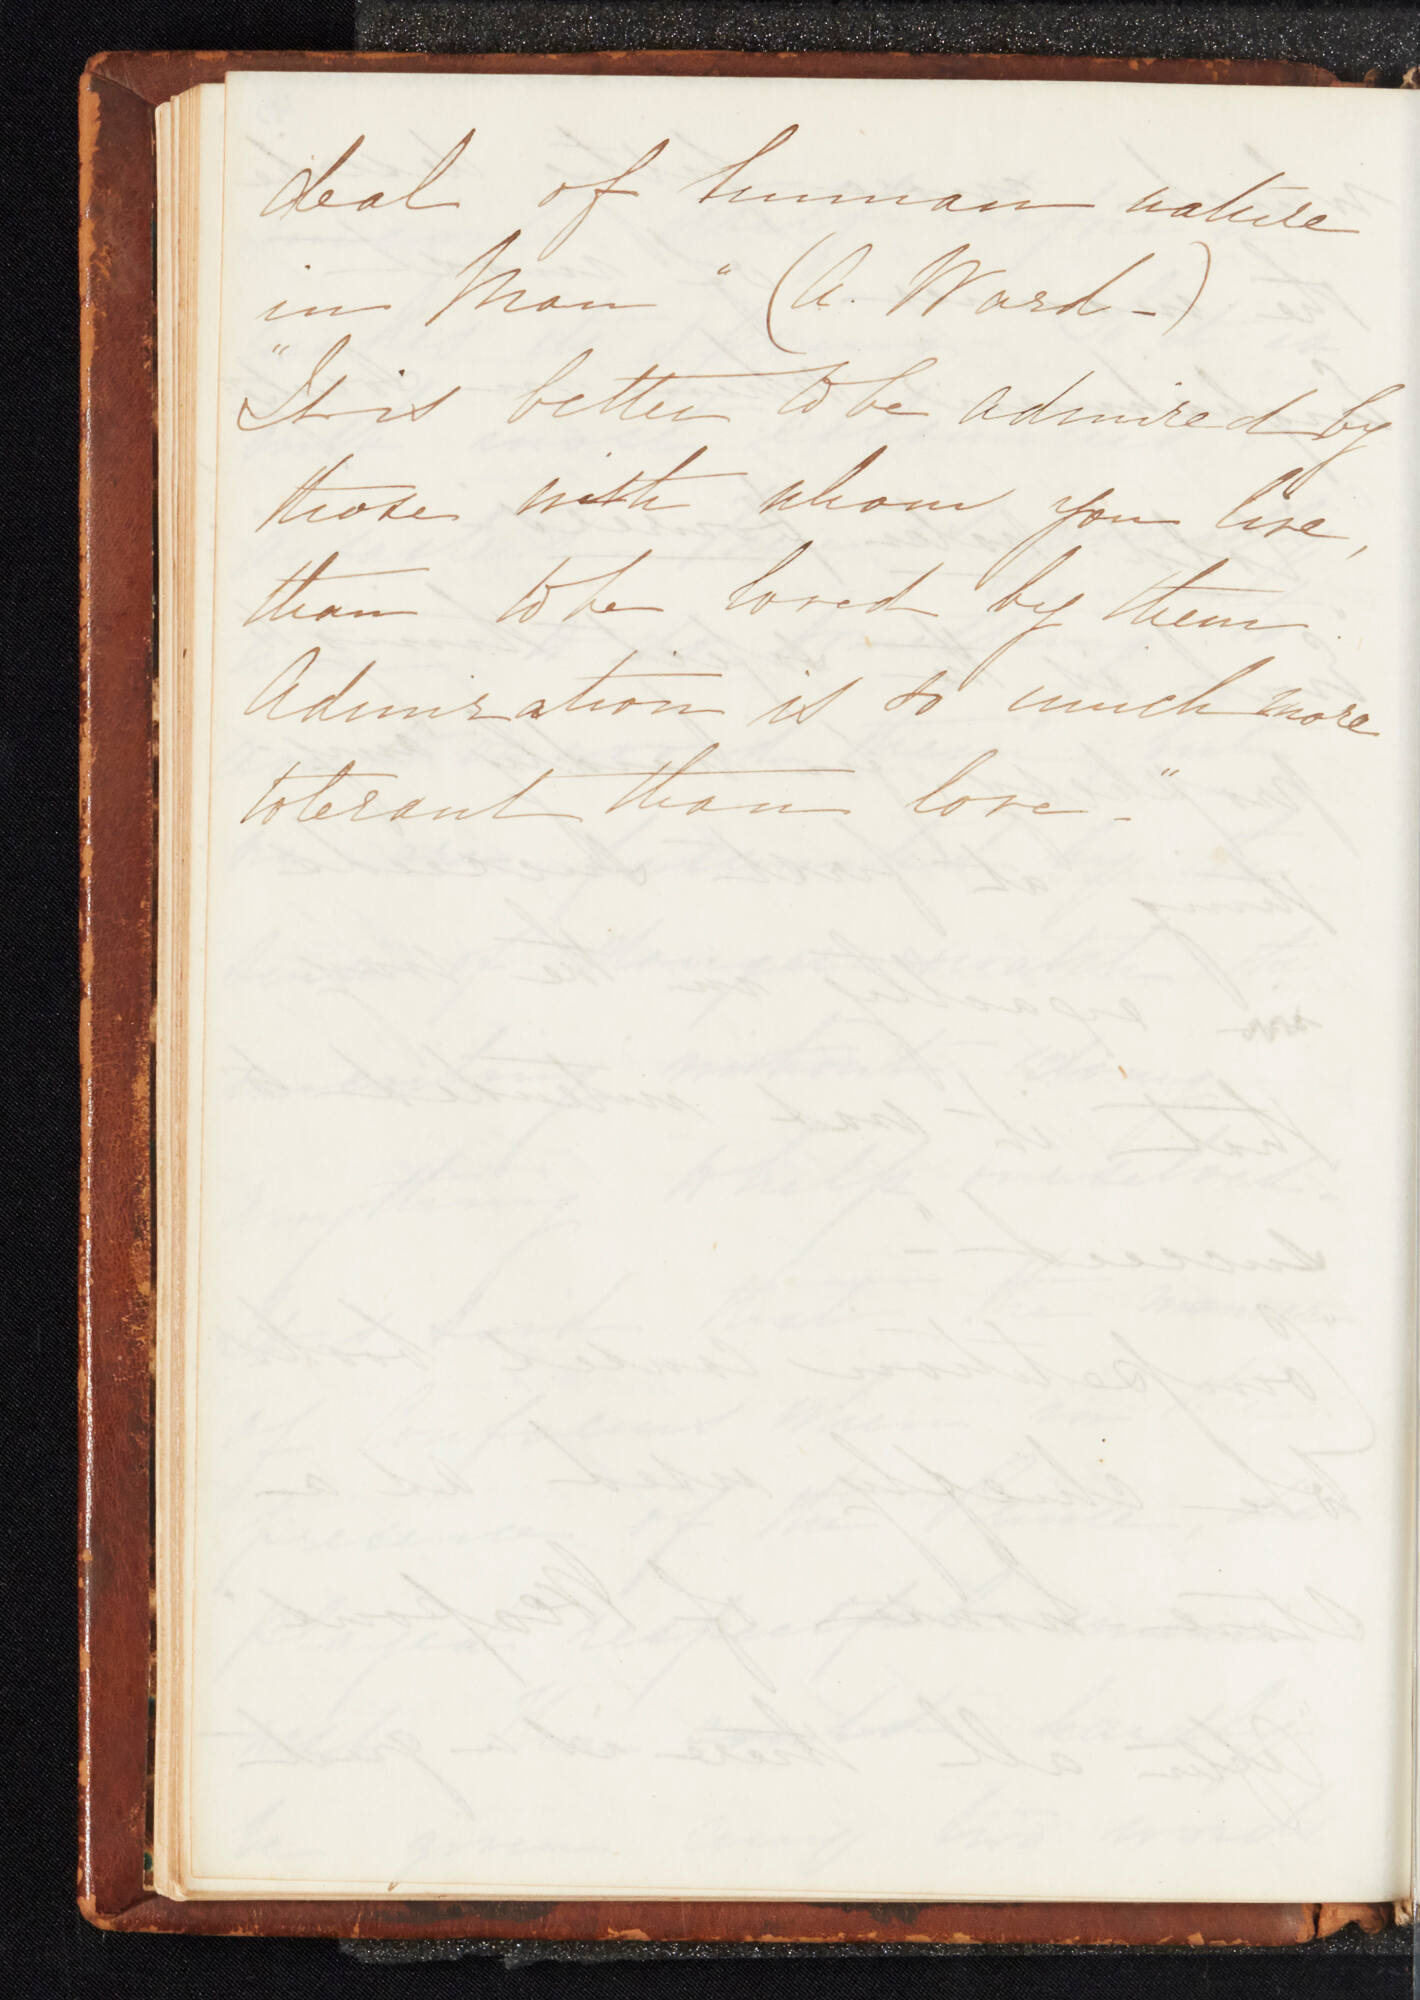 deal of human nature
in Man" (A. Ward-)
"It is better to be admired by
those with whom you live,
than to be loved by them.
Admiration is so much more
tolerant than love-"